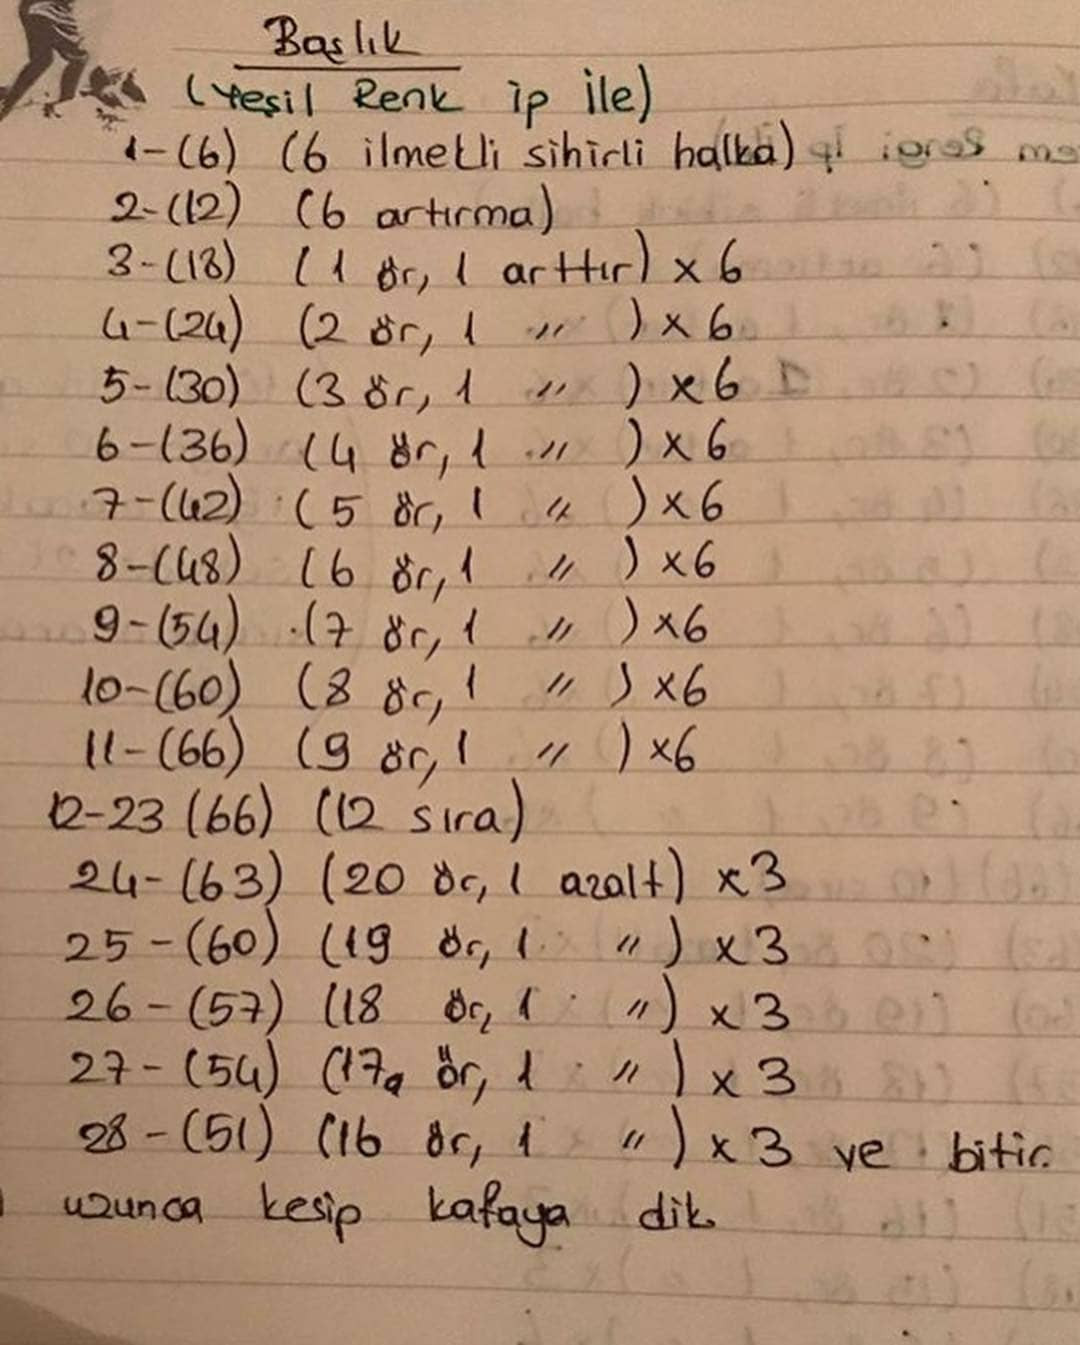 Başlık
(Yeşil Renk ip ile)
1-(6) (6 ilmekli sihirli halka)
2-(12) (6 artırma)
3-(18) (1 ör, 1 arttır) x 6
4-(24) (2 ör, 1 〃 ) x 6
5-(30) (3 ör, 1 〃 ) x 6
6-(36) (4 ör, 1 〃 ) x 6
7-(42) (5 ör, 1 〃 ) x 6
8-(48) (6 ör, 1 〃 ) x 6
9-(54) (7 ör, 1 〃 ) x 6
10-(60) (8 ör, 1 〃 ) x 6
11-(66) (9 ör, 1 〃 ) x 6
12-23 (66) (12 sıra)
24-(63) (20 ör, 1 azalt) x 3
25-(60) (19 ör, 1 〃 ) x 3
26-(57) (18 ör, 1 〃 ) x 3
27-(54) (17 ör, 1 〃 ) x 3
28-(51) (16 ör, 1 〃 ) x 3 ve bitir.
uzunca kesip kafaya dik